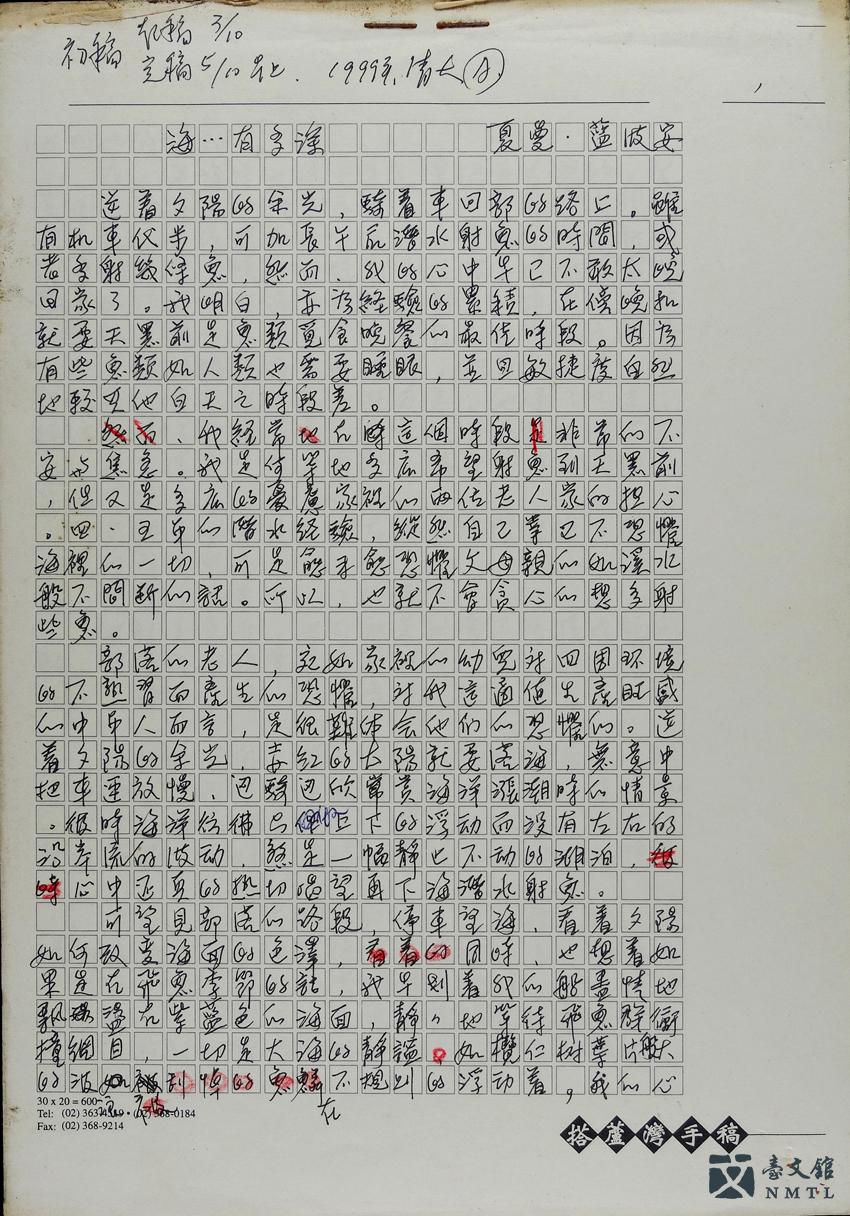 初稿 起稿 3/10
完稿 5/10 晨. 1999年,清大 A
海…有多深 夏曼·藍波安
逆着夕陽的余光,騎着車回部的路上。雖
有机車代步,可加長午后潛水射魚的時間,或
者多射幾條魚,然而、我的心中早已不敢太晚
回家了。我明白,亦許経驗的累積,在傍晚和
就要天黑前是魚類覓食晚餐的最佳時段。因為
有些魚類如人類也需要睡眠,並且敏捷度自然
地較其他白天之時段差。
然而、我経常地在時這個時段是非常的不
安与焦急。我是何等地多底希望射魚到天黑前
,但又是多底的憂慮家裡的兩位老人家的担心
。四、五年的潛水経驗,縱然自己早已不恐懼
海裡的一切,可是能不能恐懼父母親的如溪水
般不間斷的話。所以,也就不會貪心的想多射
些魚。
部落的老人,宛如家裡的幼兒対四周环境
的不熟習而產生的恐懼,対我這適值生產旺盛
的中年人而言,是很難体会他們的恐懼的。逆
着夕陽的余光,赤紅的太陽就要落海,無意中
把車速放慢,边騎边欣賞海洋漲潮時的情景
。彼時海洋彷彿只 上下的浮动而没有左右的
没岸流的波动,煞是一幅靜止不动的湖泊,彼
時心中还真的熱切喝望再下海潛水射魚。
可望見部落的路段,停車望海,看着夕陽
如何改变海面的色澤,看着的同時,也想着如
果是在飛魚季節的話,我早划着我的船盡情地
飄盪在紫藍色的海面,靜々地等待飛魚群衝
撞網目,一切是大海的靜謐。如欖仁树葉片般大
的波 刮掉的魚鱗不規则的浮动着,我的心
在
30 x 20 = 600
Tel: (02) 363-4549 • (02) 368-0184
Fax: (02) 368-9214
搭蘆灣手稿
臺文館
NMTL